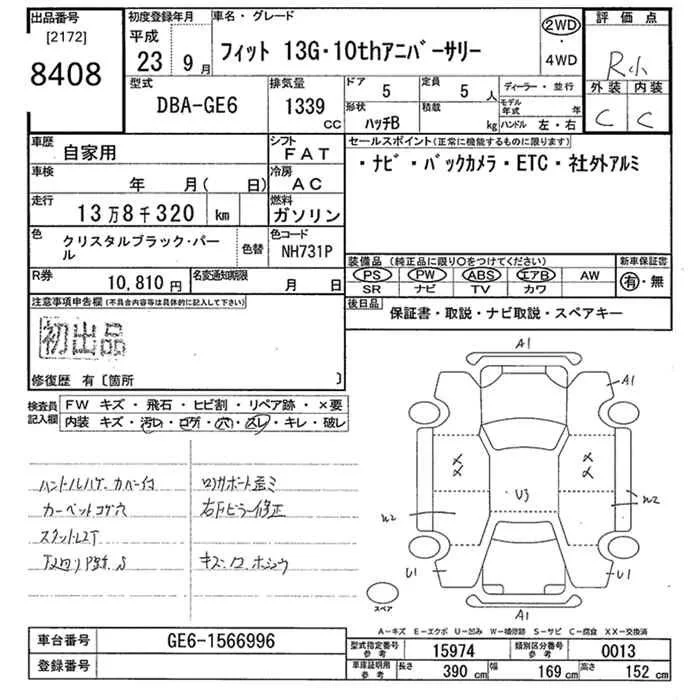 出品番号
[2172]
8408
初度登録年月
平成
23年 9月
車名・グレード
フィット 13G・10thアニバーサリー
2WD
・
4WD
評価点
R小
外装 内装
C C
型式
DBA-GE6
排気量
1339
CC
ドア
5
定員
5人
形状
ハッチB
積載
kg
ディーラー・並行
モデル年式 年
ハンドル 左・右
車歴
自家用
シフト
FAT
車検
年 月( 日)
冷房
AC
走行
13万8千320 km
燃料
ガソリン
色
クリスタルブラック・パール
色替
色コード
NH731P
R券
10,810円
名変通知期限
月 日
セールスポイント(正常に機能するものに限ります)
・ナビ・バックカメラ・ETC・社外アルミ
装備品 (純正品に限り○をつけてください)
PS PW ABS エアB AW
SR ナビ TV カワ
新車保証書
有・無
後日品
保証書・取説・ナビ取説・スペアキー
注意事項申告欄(不具合内容等は具体的に記入して下さい)
初出品
修復歴 有〔箇所 〕
検査員記入欄
FW キズ・飛石・ヒビ割・リペア跡・×要
内装 キズ・汚レ・コゲ・穴・スレ・キレ・破レ
カーペットコゲ穴
右Fピラー修正
A1
A1
U3
W2
W2
U1
U1
A1
スペア
A-キズ E-エクボ U-凹み W-補修跡 S-サビ C-腐食 XX-交換済
車台番号
GE6-1566996
登録番号
型式指定番号 参考
15974
類別区分番号 参考
0013
車庫証明用 参考
長さ 390cm 幅 169cm 高さ 152cm